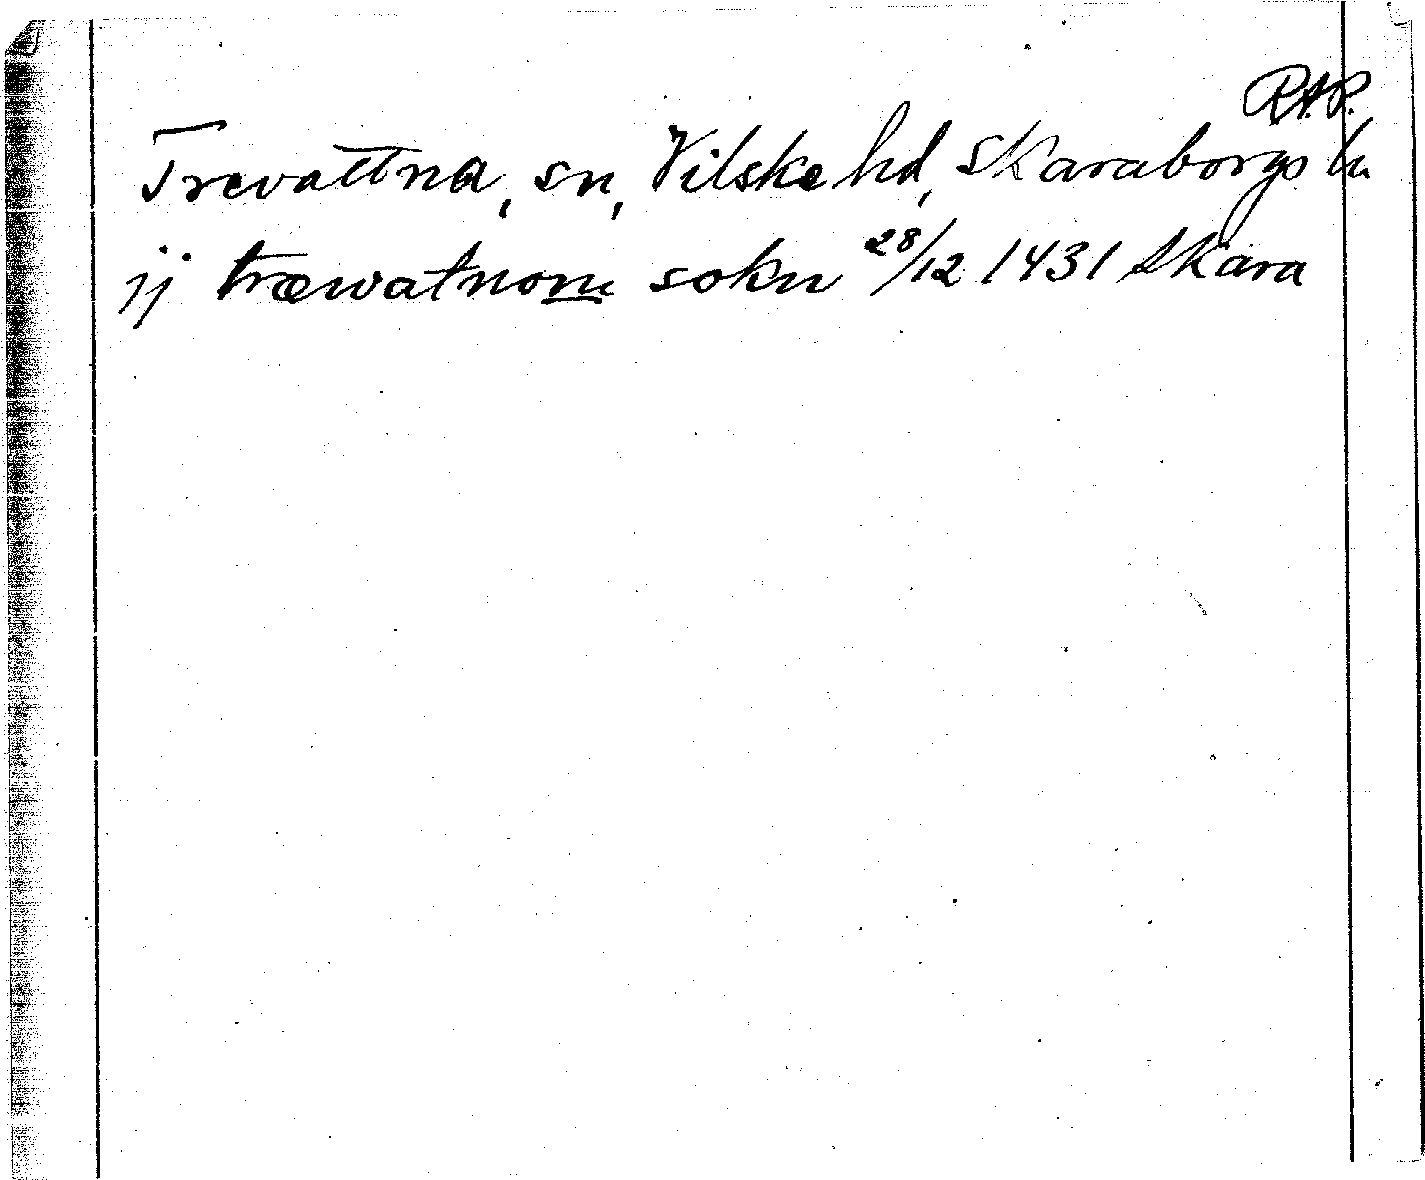 R.A.P.
Trevattna, sn, Vilske hd, Skaraborgs ln
ij træwatnom sokn 28/12 1431 Skara